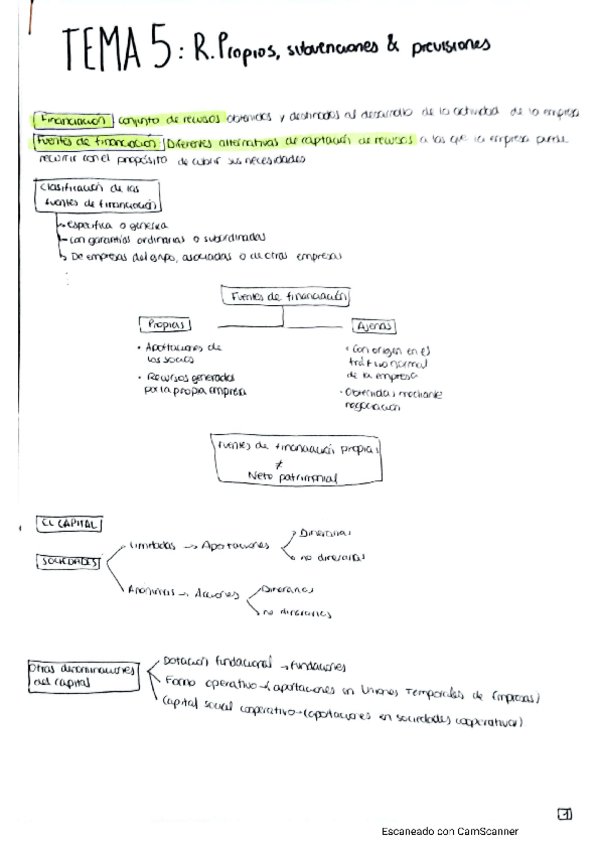 TEMA 5: R. Propios, subvenciones & previsiones
Financiación conjunto de recursos obtenidos y destinados al desarrollo de la actividad de la empresa
Fuentes de financiación Diferentes alternativas de captación de recursos a las que la empresa puede
recurrir con el propósito de cubrir sus necesidades
Clasificación de las
fuentes de financiación
Específica o genérica
Con garantías ordinarias o subordinadas
De empresas del grupo, asociadas o de otras empresas
Fuentes de financiación
Propias
Ajenas
• Aportaciones de
los socios
• Recursos generados
por la propia empresa
• Con origen en el
tráfico normal
de la empresa
• Obtenidas mediante
negociación
Fuentes de financiación propias
≠
Neto patrimonial
EL CAPITAL
SOCIEDADES
Limitadas → Aportaciones
Dinerarias
no dinerarias
Anónimas → Acciones
Dinerarias
no dinerarias
Otras denominaciones
del capital
Dotación fundacional → Fundaciones
Fondo operativo → (aportaciones en Uniones Temporales de Empresas)
Capital social cooperativo → (aportaciones en sociedades cooperativas)
1
Escaneado con CamScanner